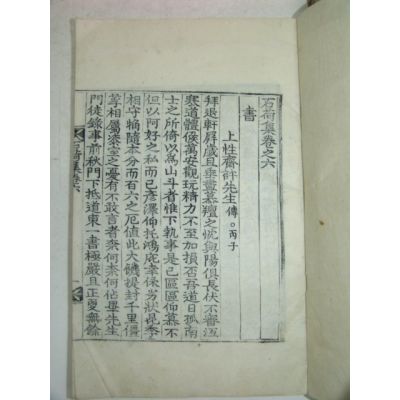 石荷集卷之六
書
上性齋許先生傳○丙子
拜退軒屛歲且再虀慕羶之忱與陽俱長伏不審沍
寒道體候萬安觀玩精力不至加損否吾道日孤南
士之所倚以爲山斗者惟下執事是已區區仰慕不
但以阿好之私而已彦澤仰托鴻庇幸保劣狀是季
相守桶隨本分而百六之厄値此大饑提封千里僵
莩相屬漆室之憂有不敢言者柰何柰何佔畢先生
門徒錄事前秋門下抵道東一書極嚴且正更無餘
石荷集卷六